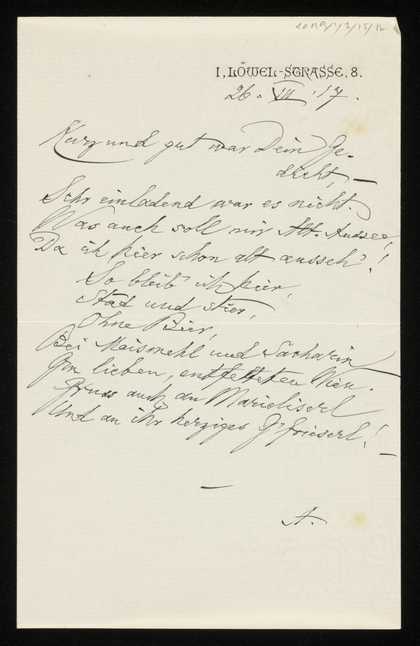 I, LÖWEL-STRASSE, 8.
26. VII. '17.
Kurz und gut war Dein Ge-
dicht, —
Sehr einladend war es nicht.
Was auch soll mir Alt-Aussee,
Da ich hier schon alt ausseh'!
So bleib' ich hier,
Stad und stier,
Ohne Bier,
Bei Maismehl und Sacharin
Im lieben, entfetteten Wien.
Gruss auch an Marieliserl
Und an ihr herziges G'frieserl! —
—
A.